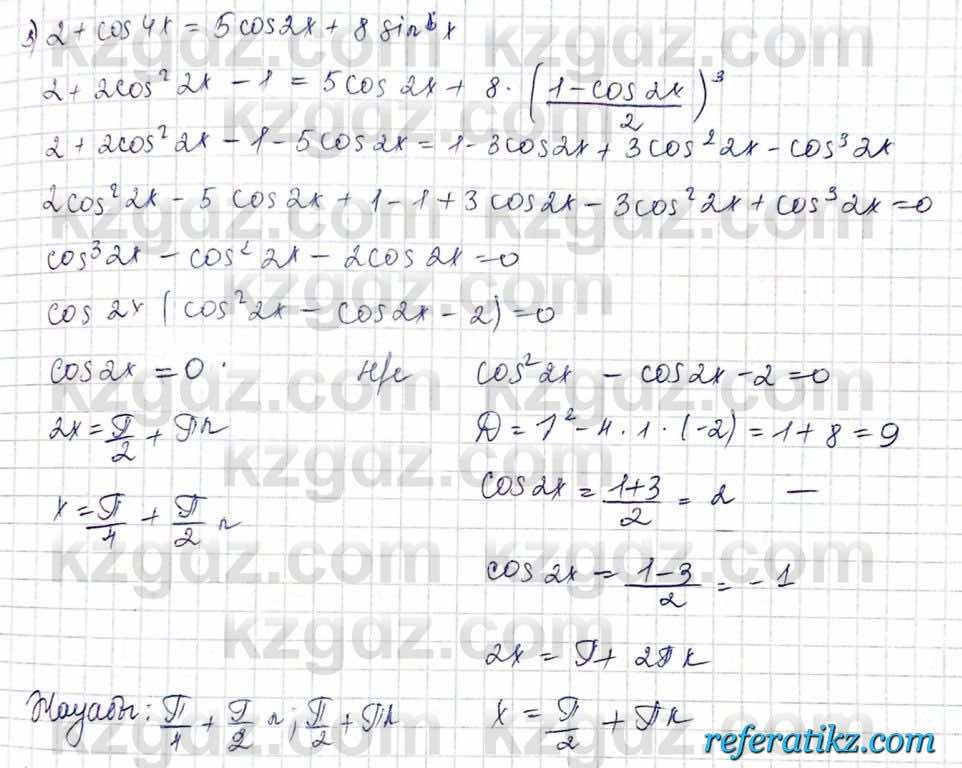 3) 2 + cos 4x = 5 cos 2x + 8 sin⁶ x
2 + 2cos² 2x − 1 = 5 cos 2x + 8 · ((1 − cos 2x)/2)³
2 + 2cos² 2x − 1 − 5 cos 2x = 1 − 3 cos 2x + 3 cos² 2x − cos³ 2x
2cos² 2x − 5 cos 2x + 1 − 1 + 3 cos 2x − 3 cos² 2x + cos³ 2x = 0
cos³ 2x − cos² 2x − 2cos 2x = 0
cos 2x (cos² 2x − cos 2x − 2) = 0
cos 2x = 0 н/е cos² 2x − cos 2x − 2 = 0
2x = π/2 + πn D = 1² − 4 · 1 · (−2) = 1 + 8 = 9
cos 2x = (1+3)/2 = 2 —
x = π/4 + π/2 n
cos 2x = (1−3)/2 = −1
2x = π + 2πk
Жауабы: π/4 + π/2 n; π/2 + πk x = π/2 + πk
kzgdz.com
referatikz.com